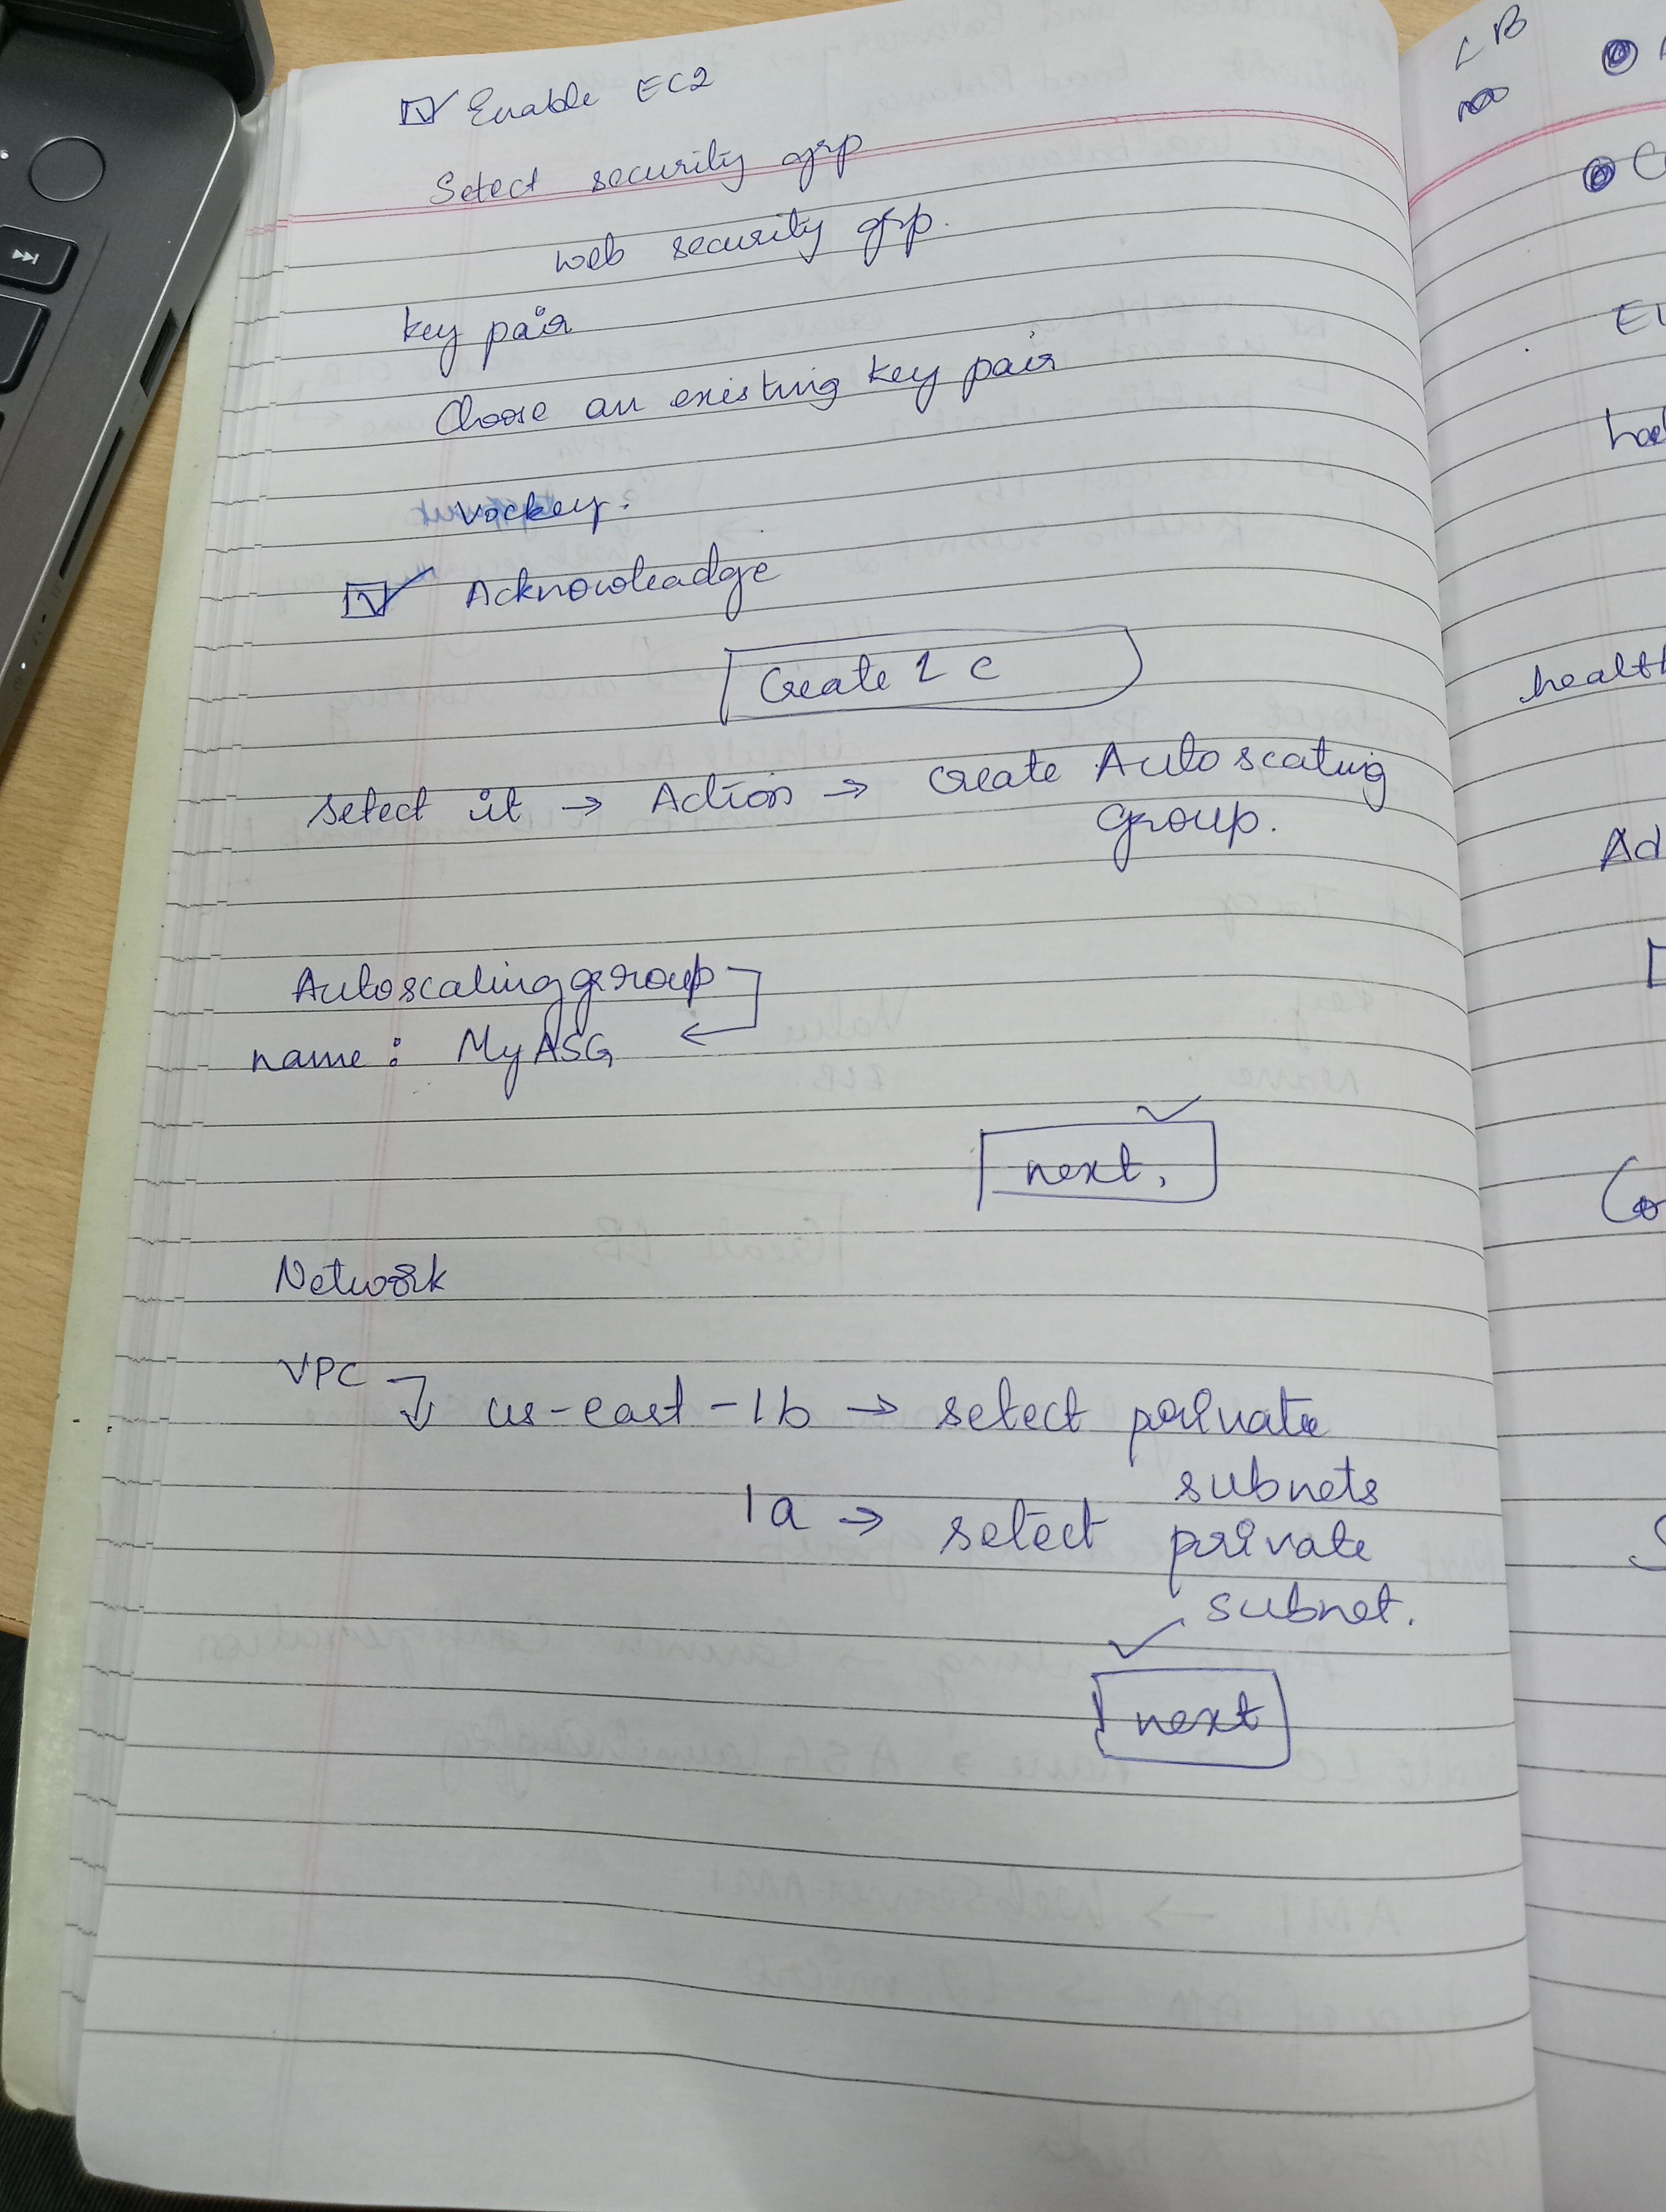 Enable EC2
Select security grp
web security grp.
key pair
Choose an existing key pair
vockey.
Acknowleadge
Create L C
Select it → Action → Create Auto scaling
group.
Autoscaling group
name : MyASG
next.
Network
VPC us-east-1b → select private
subnets
1a → select private
subnet.
next
LB
health
Ad